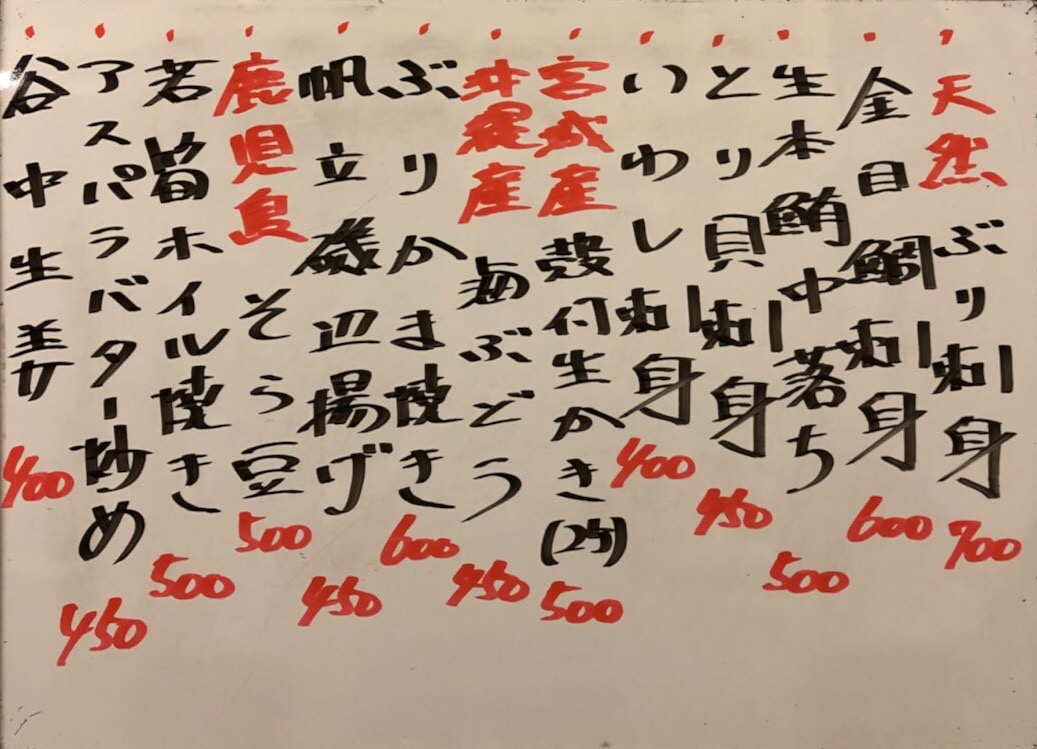 天然ぶり刺身 700
金目鯛刺身 600
生本鮪中落ち 500
とり貝刺身 450
いわし刺身 400
宮城産殻付生かき(2ケ) 500
沖縄産海ぶどう 450
ぶりかま焼き 600
帆立磯辺揚げ 450
鹿児島そら豆 500
若筍ホイル焼き 500
アスパラバター炒め 450
谷中生姜 400